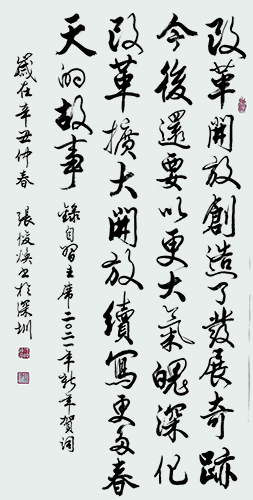 改革開放創造了發展奇跡
今後還要以更大氣魄深化
改革擴大開放續寫更多春
天的故事
錄自習主席二〇二一年新年賀詞
歲在辛丑仲春 張俊煥書於深圳